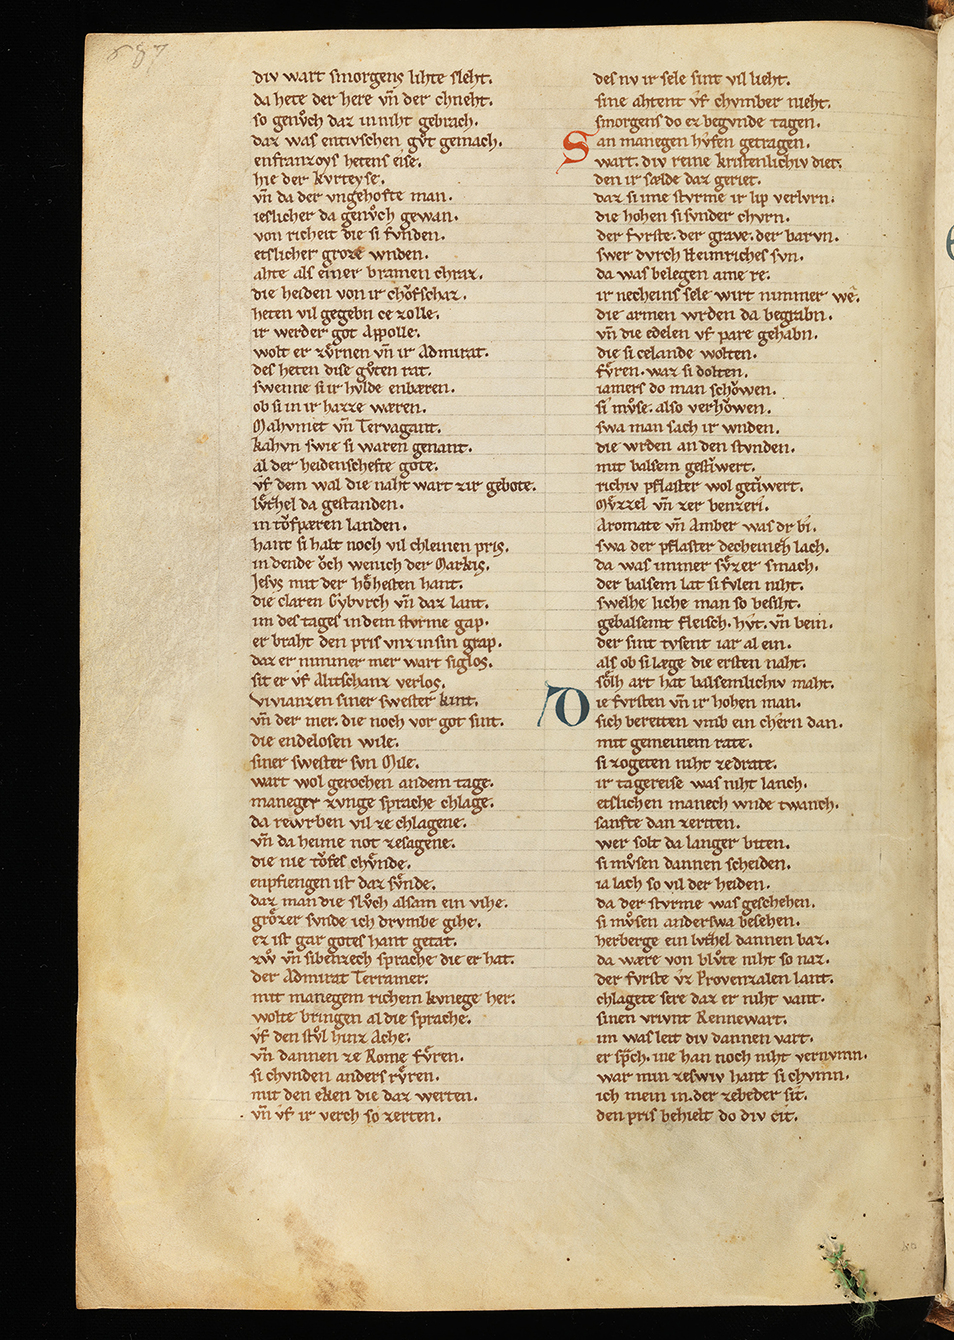 687
div wart smorgens lihte sleht.
da hete der here vn̄ der chneht.
so genv̊ch daz in niht gebrach.
daz was entwschen gv̊t gemach.
enfranzoys hetens eise.
hie der kvrteyse.
vn̄ da der vngehofte man.
ieslicher da genv̊ch gewan.
von richeit die si fvnden.
etslicher groze wnden.
ahte als einer bramen chraz.
die heiden von ir chǒfschaz.
heten vil gegebn ce zolle.
ir werder got Appolle.
wolt er zv̊rnen vn̄ ir Admirat.
des heten dise gv̊ten rat.
swenne si ir hvlde enbæren.
ob si in ir hazze wæren.
Mahvmet vn̄ Tervagant.
kahvn swie si waren genant.
al der heidenschefte gote.
v̊f dem wal die naht wart zir gebote.
lv̊tzhel da gestanden.
in tǒfpæren landen.
hant si halt noch vil chleinen pris.
in dende ǒch wenich der Markis.
Jesvs mit der hǒhesten hant.
die claren Gybvrch vn̄ daz lant.
im des tages in dem stvrme gap.
er braht den pris vnz in sin grap.
daz er nimmer mer wart siglos.
sit er v̊f Alitschanz verlos.
Vivianzen siner swester kint.
vn̄ der mer. die noch vor got sint.
die endelosen wile.
siner swester svn Mile.
wart wol gerochen an dem tage.
maneger zvnge sprache chlage.
da rewrben vil ze chlagene.
vn̄ da heime not ze sagene.
die nie tǒfes chv̊nde.
enpfiengen ist daz sv̊nde.
daz man die slv̊ch alsam ein vihe.
grǒzer svnde ich drvmbe gihe.
ez ist gar gotes hant getat.
zẘ vn̄ sibenzech sprache die er hat.
der Admirat Terramer.
mit manegem richem kvnege her.
wolte bringen al die sprache.
v̊f den stv̊l hinz Ache.
vn̄ dannen ze Rome fv̊ren.
si chvnden anders rv̊ren.
mit den eken die daz werten.
vn̄ v̊f ir verch so zerten.
des nv ir sele sint vil lieht.
sine ahtent v̊f chvmber nieht.
smorgens do ez begvnde tagen.
San manegen hv̊fen getragen.
wart. div reine kristenlichiv diet.
den ir sælde daz geriet.
daz si ime stvrme ir lip verlvrn.
die hohen si svnder chvrn.
der fvrste. der grave. der barvn.
swer dvrch Heimriches svn.
da was belegen ame re.
ir necheins sele wirt nimmer we.
die armen wrden da begrabn.
vn̄ die edelen v̊f pare gehabn.
die si ce lande wolten.
fv̊ren. waz si dolten.
iamers do man schǒwen.
si mv̊se. also verhǒwen.
swa man sach ir wnden.
die wrden an den stvnden.
mit balsem gestiwert.
richiv pflaster wol getiwert.
Mv̊zzel vn̄ zer benzeri.
Aromate vn̄ Amber was dr bi.
swa der pflaster decheinez lach.
da was immer sv̊zer smach.
der balsem lat si fvlen niht.
swelhe liche man so besiht.
gebalsemt fleisch. hv̊t. vn̄ bein.
der sint tvsent iar al ein.
als ob si læge die ersten naht.
sǒlh art hat balsemlichiv maht.
Die fvrsten vn̄ ir hohen man.
sich bereiten vmb ein chern dan.
mit gemeinem rate.
si zogeten niht ze drate.
ir tagereise was niht lanch.
etslichen manech wnde twanch.
sanfte dan zeriten.
wer solt da langer biten.
si mv̊sen dannen scheiden.
ia lach so vil der heiden.
da der stvrme was geschehen.
si mv̊sen anderswa besehen.
herberge ein lvtzhel dannen baz.
da wære von blv̊te niht so naz.
der fvrste v̊z Provenzalen lant.
chlagete sere daz er niht vant.
sinen vrivnt Rennewart.
im was leit div dannen vart.
er sp̄ch. ine han noch niht vernvmn.
war min zeswiv hant si chvmn.
ich mein in. der ze beder sit.
den pris behielt do div cit.